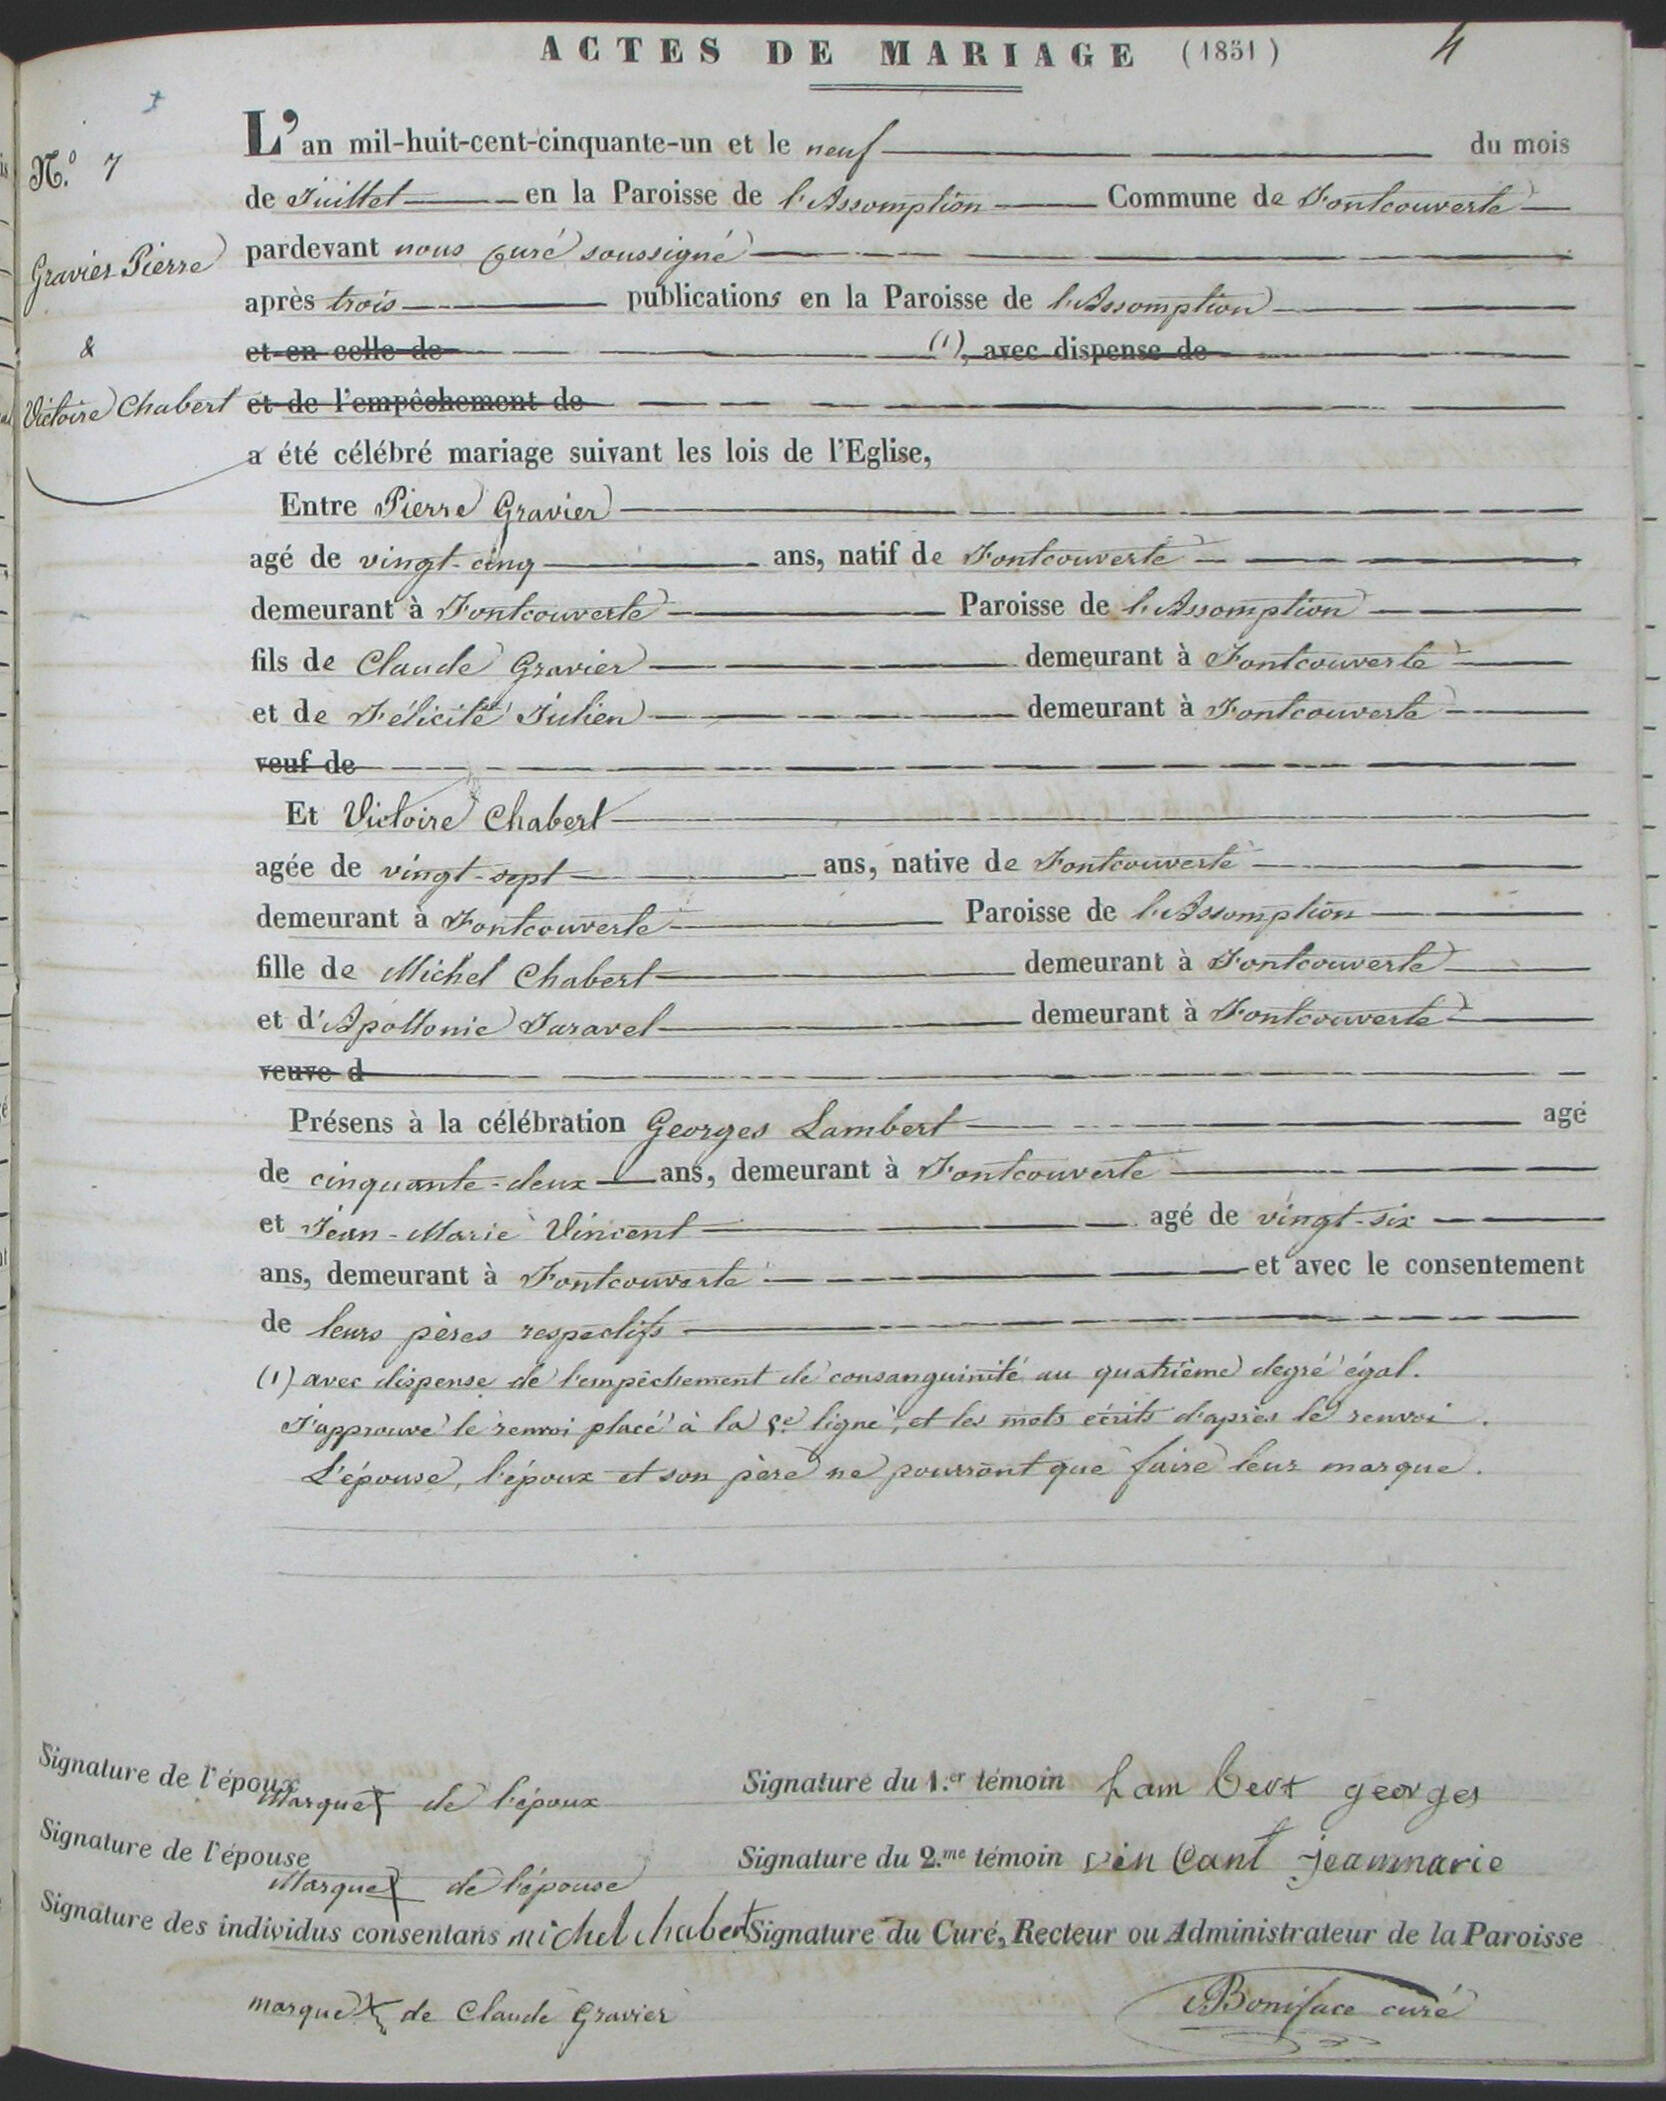 ACTES DE MARIAGE (1851)
4
N.º 7
Gravier Pierre
&
Victoire Chabert
L'an mil-huit-cent-cinquante-un et le neuf du mois
de Juillet en la Paroisse de l'Assomption Commune de Fontcouverte
pardevant nous curé soussigné
après trois publications en la Paroisse de l'Assomption
et en celle de (1), avec dispense de
et de l'empêchement de
a été célébré mariage suivant les lois de l'Eglise,
Entre Pierre Gravier
agé de vingt-cinq ans, natif de Fontcouverte
demeurant à Fontcouverte Paroisse de l'Assomption
fils de Claude Gravier demeurant à Fontcouverte
et de Félicité Julien demeurant à Fontcouverte
veuf de
Et Victoire Chabert
agée de vingt-sept ans, native de Fontcouverte
demeurant à Fontcouverte Paroisse de l'Assomption
fille de Michel Chabert demeurant à Fontcouverte
et d'Apollonie Taravel demeurant à Fontcouverte
veuve d
Présens à la célébration Georges Lambert agé
de cinquante-deux ans, demeurant à Fontcouverte
et Jean-Marie Vincent agé de vingt-six
ans, demeurant à Fontcouverte et avec le consentement
de leurs pères respectifs
(1) avec dispense de l'empêchement de consanguinité au quatrième degré égal.
J'approuve le renvoi placé à la 5e ligne, et les mots écrits d'après le renvoi.
L'épouse, l'époux et son père ne pourront que faire leur marque.
Signature de l'époux Marque de l'époux
Signature du 1.er témoin Lam bert georges
Signature de l'épouse Marque de l'épouse
Signature du 2.me témoin vin Cant jeanmarie
Signature des individus consentans michel chabert
Signature du Curé, Recteur ou Administrateur de la Paroisse
marque de Claude Gravier
Boniface curé